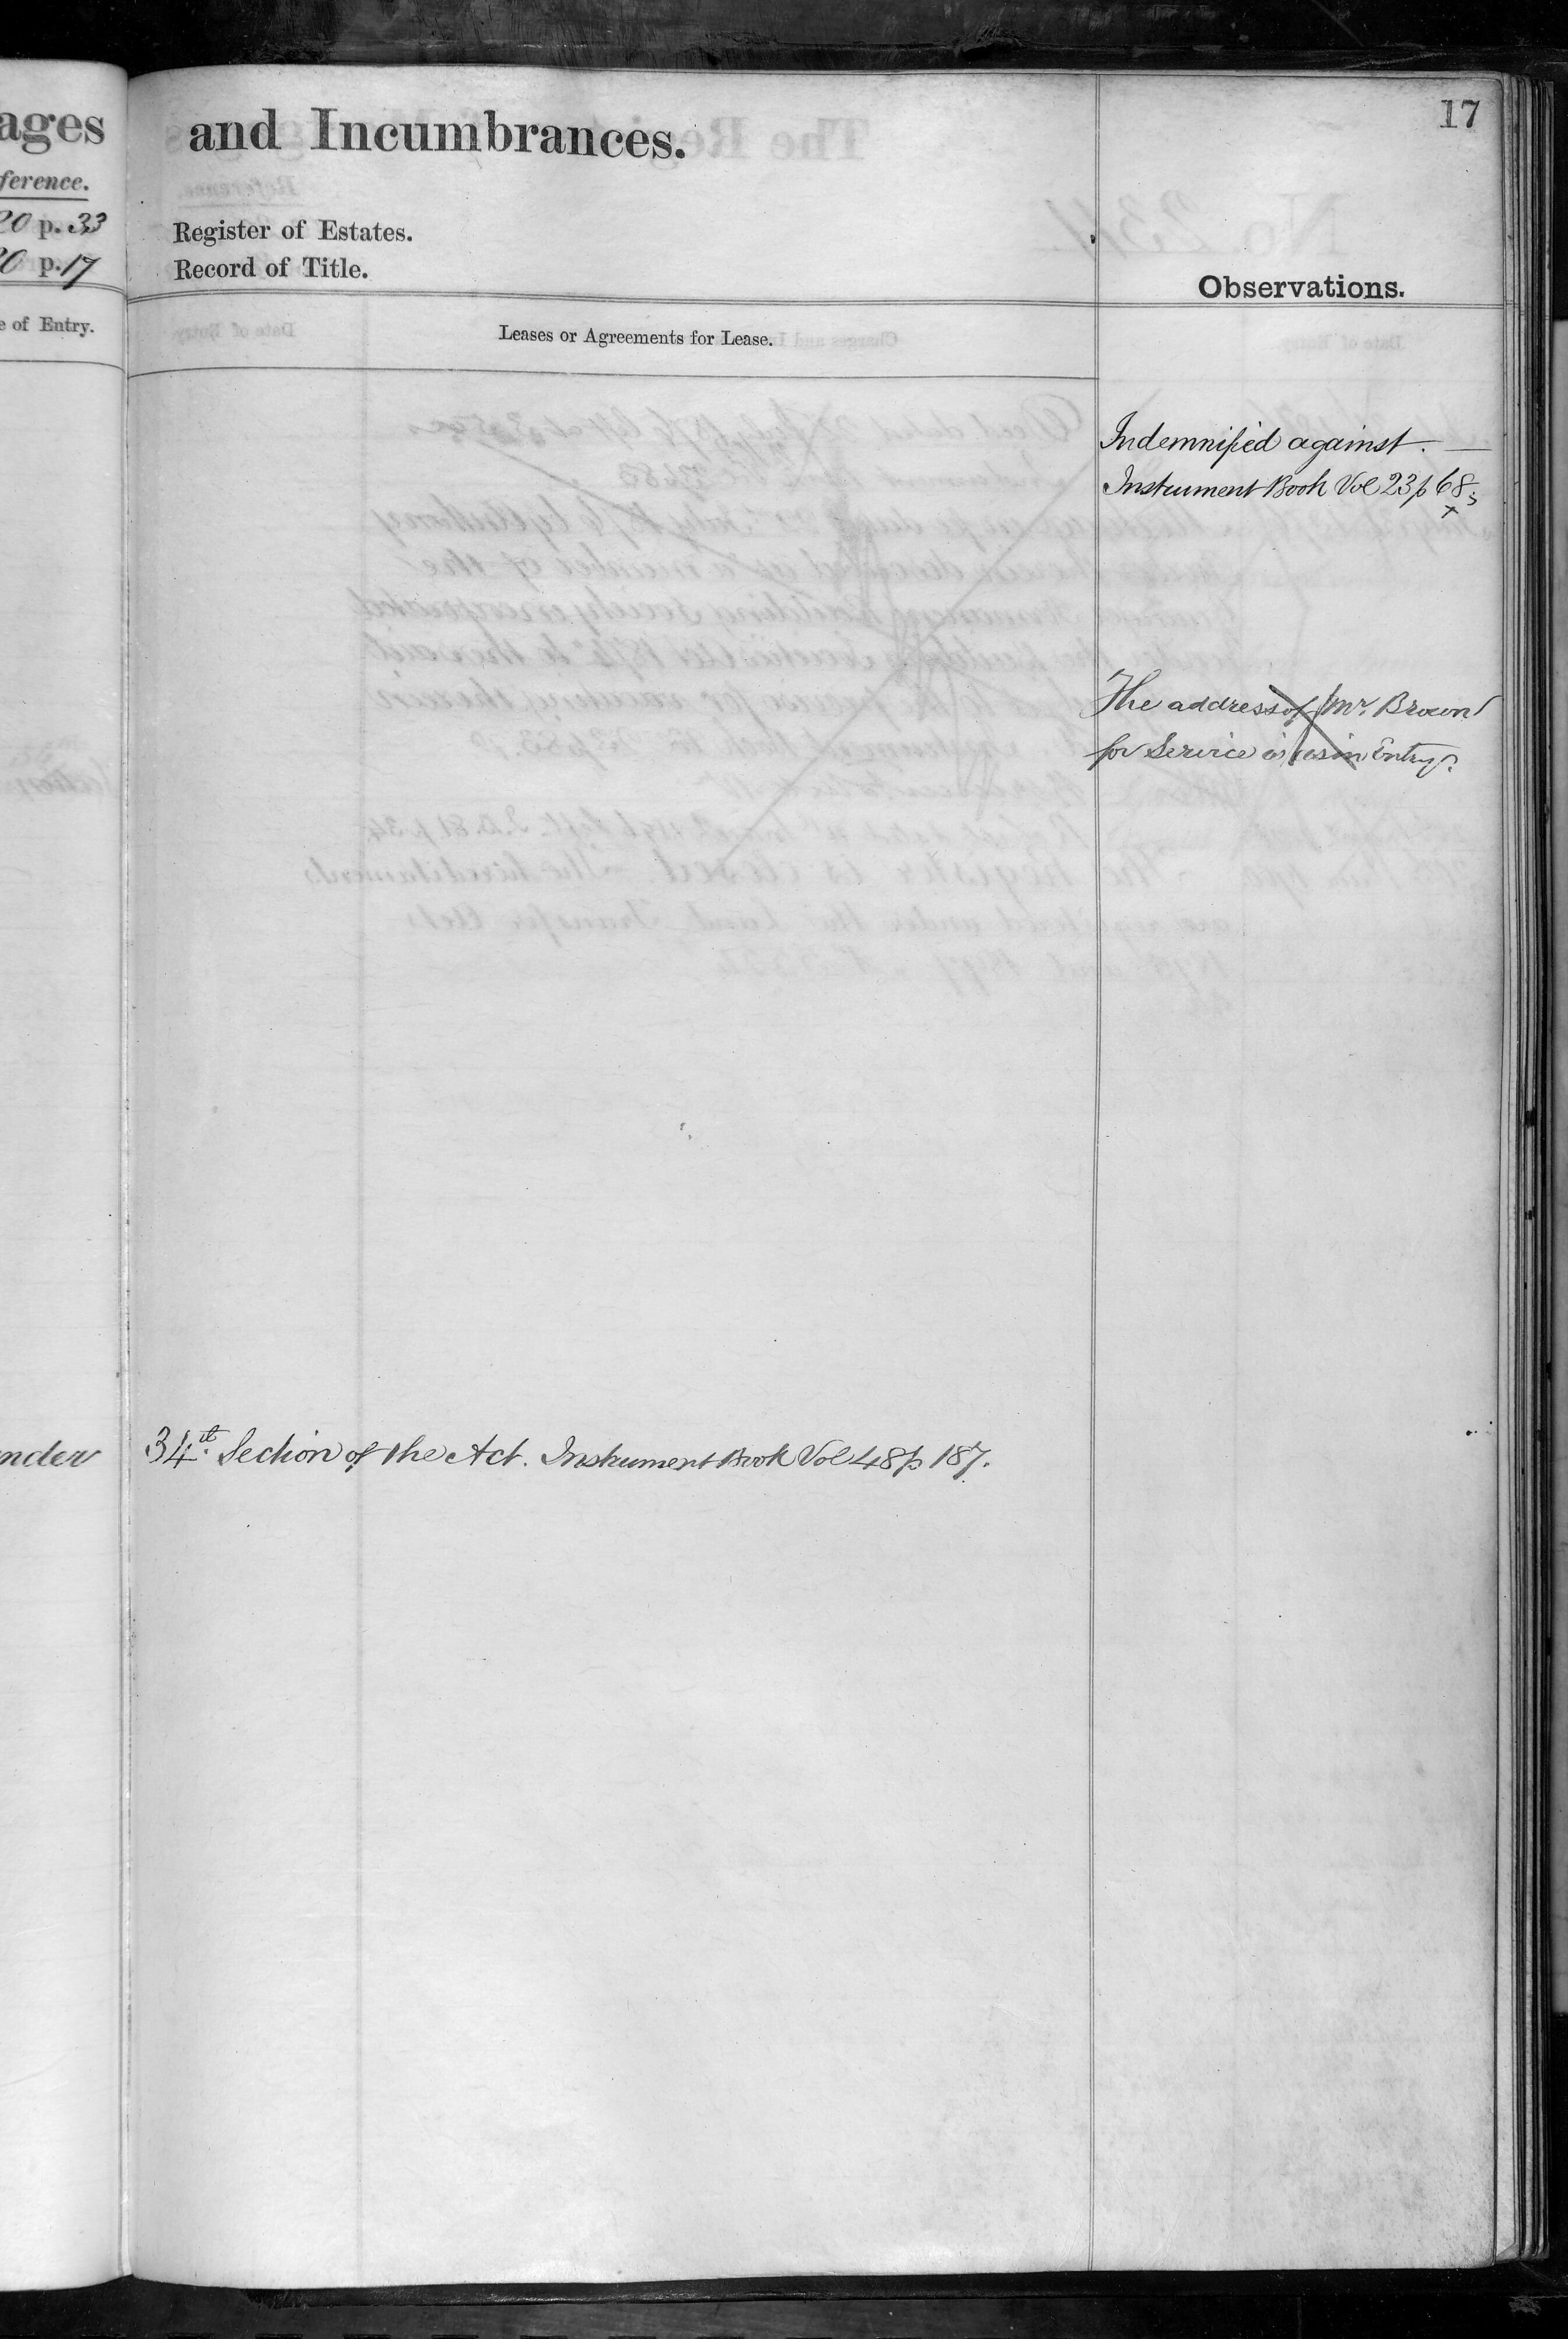 ages
ference.
20 p. 33
20 p. 17
e of Entry.
nder
17
and Incumbrances.
Register of Estates.
Record of Title.
Observations.
Leases or Agreements for Lease.
Indemnified against. —
Instrument Book Vol 23 p 68
The address of Mr. Brown
for Service is as in Entry.
34th Section of the Act. Instrument Book Vol 48 p 187.